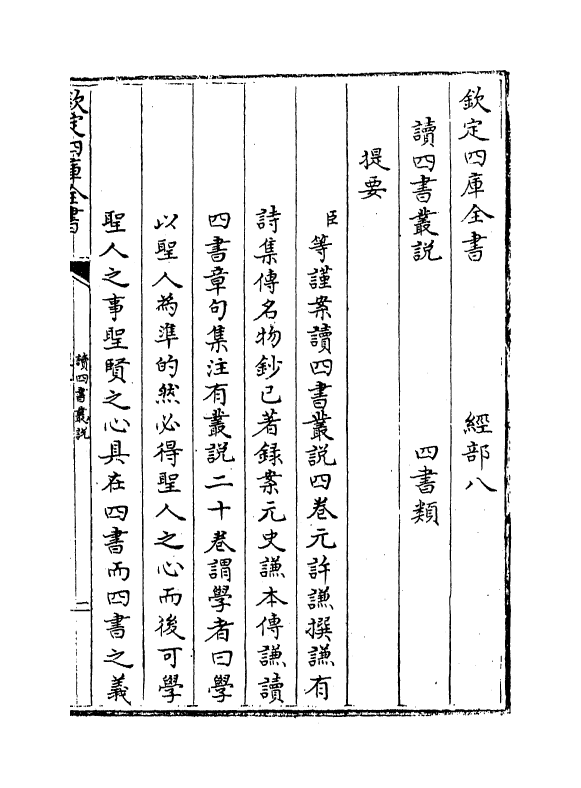 欽定四庫全書 經部八
讀四書叢説 四書類
提要
臣等謹案讀四書叢説四卷元許謙撰謙有
詩集傳名物鈔已著録案元史謙本傳謙讀
四書章句集注有叢説二十卷謂學者曰學
以聖人為準的然必得聖人之心而後可學
聖人之事聖賢之心具在四書而四書之義
欽定四庫全書
讀四書叢説